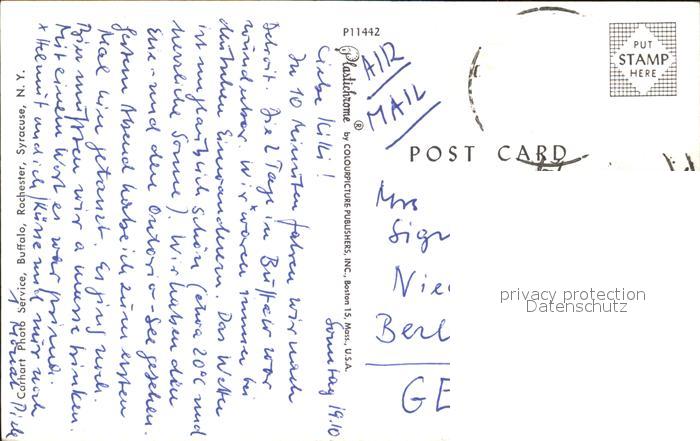 P11442
PUT
STAMP
HERE
AIR
MAIL
POST CARD
Plastichrome ® by COLOURPICTURE PUBLISHERS, INC., Boston 15, Mass., U.S.A.
Carhart Photo Service, Buffalo, Rochester, Syracuse, N. Y.
Sonntag 19.10
Liebe Kiki!
In 10 Minuten fahren wir nach
Detroit. Die 2 Tage in Buffalo war
wunderbar. Wir waren immer bei
deutschen Einwanderern. Das Wetter
ist unglaublich schön (etwa 20°C und
herrliche Sonne) Wir haben den
Erie- und den Ontario-See gesehen.
Gestern Abend habe ich zum ersten
Mal hier getanzt. Es ging noch.
Bier mußten wir a masse trinken.
Mit einem Wort es war prima.
x Helmut und ich Küsse und nur noch
1 Monat Dich
Mrs
Sigr
Nie
Berl
GE
privacy protection
Datenschutz